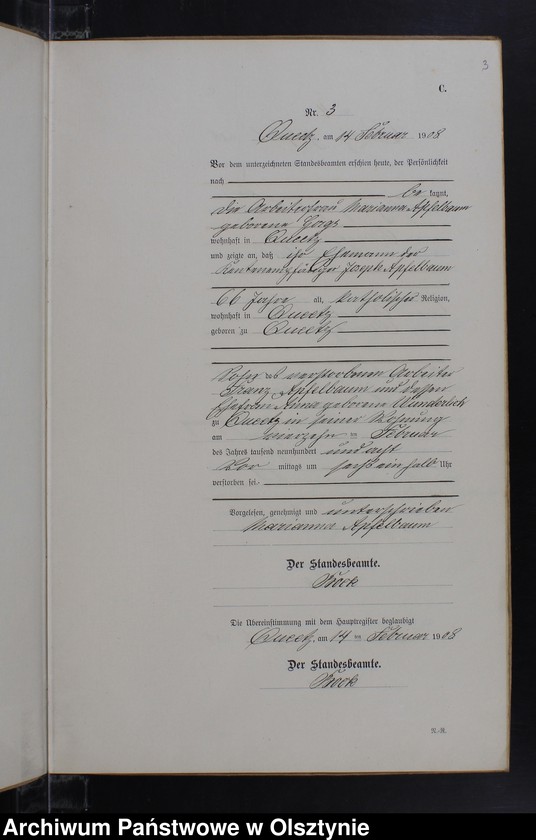 3
C.
Nr. 3
Queetz, am 14 Februar 1908
Vor dem unterzeichneten Standesbeamten erschien heute, der Persönlichkeit
nach
be kannt,
die Arbeiterfrau Marianna Apfelbaum
geborene
wohnhaft in Queetz
und zeigte an, daß ihr Ehemann der
Rentenempfänger Joseph Apfelbaum
66 Jahre alt, katholischer Religion,
wohnhaft in Queetz
geboren zu Queetz
Sohn des verstorbenen Arbeiter
Franz Apfelbaum und dessen
Ehefrau Anna geborene Wunderlich
zu Queetz in seiner Wohnung
am vierzehn ten Februar
des Jahres tausend neunhundert und acht
Vor mittags um sechs ein halb Uhr
verstorben sei.
Vorgelesen, genehmigt und unterschrieben
Marianna Apfelbaum
Der Standesbeamte.
Bock
Die Übereinstimmung mit dem Hauptregister beglaubigt
Queetz, am 14 ten Februar 1908
Der Standesbeamte.
Bock
N.-R.
Archiwum Państwowe w Olsztynie